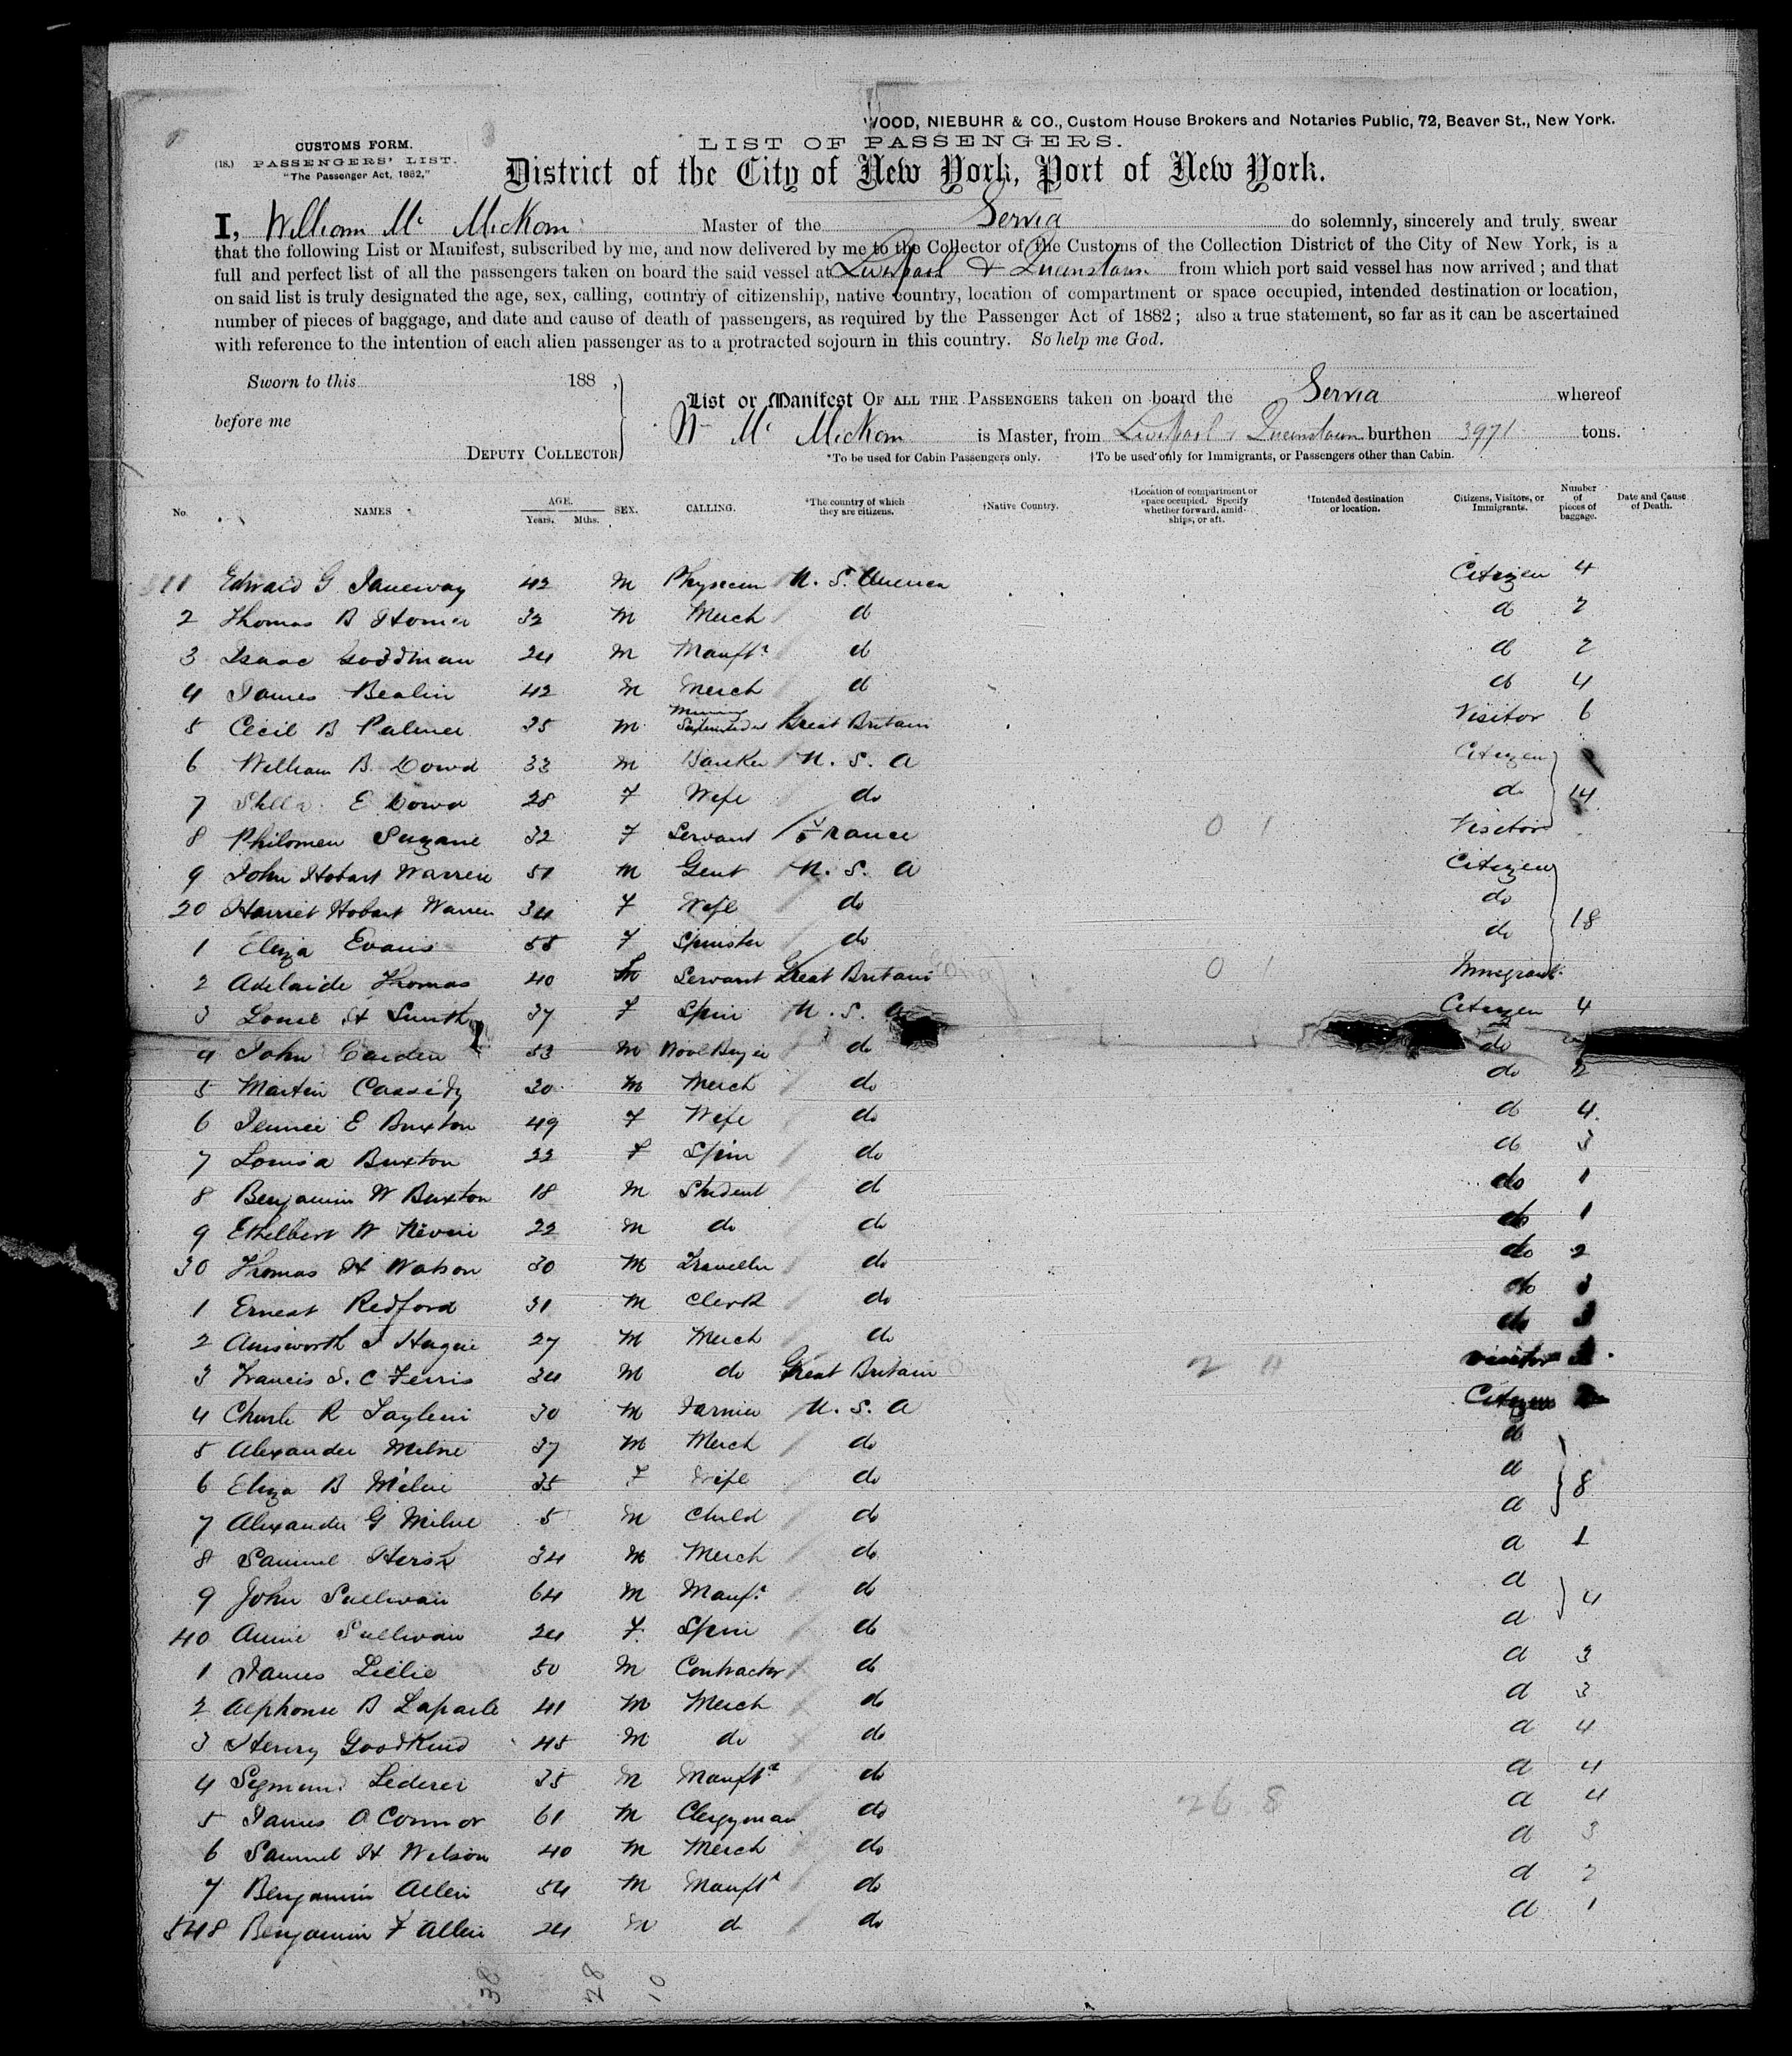 WOOD, NIEBUHR & CO., Custom House Brokers and Notaries Public, 72, Beaver St., New York.
CUSTOMS FORM.
LIST OF PASSENGERS.
(18.) PASSENGERS' LIST.
"The Passenger Act, 1882,"
District of the City of New York, Port of New York.
I, William Mc Mickan Master of the Servia do solemnly, sincerely and truly swear
that the following List or Manifest, subscribed by me, and now delivered by me to the Collector of the Customs of the Collection District of the City of New York, is a
full and perfect list of all the passengers taken on board the said vessel at Liverpool & Queenstown from which port said vessel has now arrived; and that
on said list is truly designated the age, sex, calling, country of citizenship, native country, location of compartment or space occupied, intended destination or location,
number of pieces of baggage, and date and cause of death of passengers, as required by the Passenger Act of 1882; also a true statement, so far as it can be ascertained
with reference to the intention of each alien passenger as to a protracted sojourn in this country. So help me God.
Sworn to this 188 ,
before me
DEPUTY COLLECTOR
List or Manifest OF ALL THE PASSENGERS taken on board the Servia whereof
W Mc Mickan is Master, from Liverpool & Queenstown burthen 3971 tons.
*To be used for Cabin Passengers only. †To be used only for Immigrants, or Passengers other than Cabin.
No. NAMES AGE. Years. Mths. SEX. CALLING. *The country of which they are citizens. †Native Country. †Location of compartment or space occupied. Specify whether forward, amidships, or aft. †Intended destination or location. Citizens, Visitors, or Immigrants. Number of pieces of baggage. Date and Cause of Death.
511 Edward G Janeway 42 M Physician U. S. America Citizen 4
2 Thomas B Homer 32 M Merch do do 2
3 Isaac Goodman 24 M Manftr do do 2
4 James Bealin 42 M Merch do do 4
5 Cecil B Palmer 35 M Mining Great Britain Visitor 6
6 William B Dowd 33 M Banker U. S. A Citizen
7 Stella E Dowd 28 F Wife do do 14
8 Philomen Suzane 32 F Servant France 0 1 Visitor
9 John Hobart Warren 51 M Gent U. S. A Citizen
20 Harriet Hobart Warren 34 F Wife do do 18
1 Eliza Evans 55 F Spinster do do
2 Adelaide Thomas 40 F Servant Great Britain 0 1 Immigrant
3 Louie H Smith 37 F Spin U. S. A Citizen 4
4 John Carden 53 M Wool Buyer do do
5 Martin Cassidy 30 M Merch do do 2
6 Jennie E Buxton 49 F Wife do do 4
7 Louisa Buxton 22 F Spin do do 3
8 Benjamin W Buxton 18 M Student do do 1
9 Ethelbert W Nevin 22 M do do do 1
30 Thomas H Watson 30 M Traveller do do 2
1 Ernest Redford 31 M Clerk do do 3
2 Ainsworth J Hague 27 M Merch do do 3
3 Francis S. C Ferris 34 M do Great Britain 2 Visitor
4 Charle R 30 M Farmer U. S. A Citizen
5 Alexander Milne 37 M Merch do do
6 Eliza B Milne 35 F Wife do do 8
7 Alexander G Milne 5 M Child do do
8 Samuel Hirsh 34 M Merch do do 1
9 John Sullivan 64 M Manfr do do 4
40 Annie Sullivan 24 F Spin do do
1 James Lillie 50 M Contractor do do 3
2 Alphonse B 41 M Merch do do 3
3 Henry Goodkind 45 M do do do 4
4 Segmund Lederer 35 M Manftr do do 4
5 James O Connor 61 M Clergyman do 26 8 do 4
6 Samuel H Wilson 40 M Merch do do 3
7 Benjamin Allen 54 M Manftr do do 2
548 Benjamin F Allen 24 M do do do 1
38 28 10